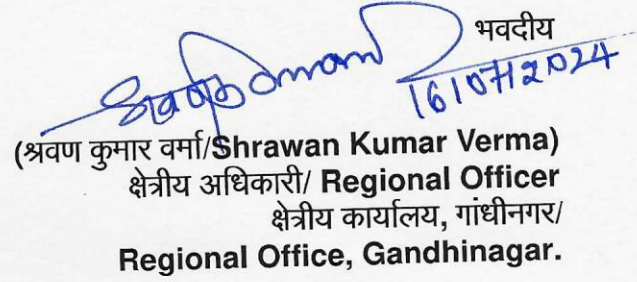 भवदीय
16/07/2024
(श्रवण कुमार वर्मा/Shrawan Kumar Verma)
क्षेत्रीय अधिकारी/ Regional Officer
क्षेत्रीय कार्यालय, गांधीनगर/
Regional Office, Gandhinagar.